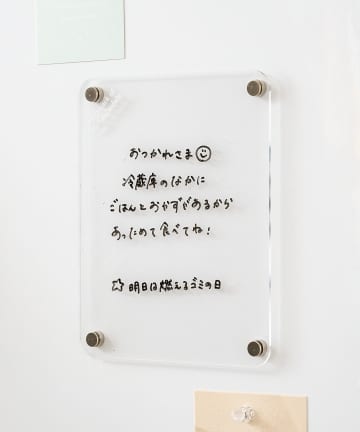 おつかれさま☺
冷蔵庫のなかに
ごはんとおかずがあるから
あっためて食べてね!
☆明日は燃えるゴミの日